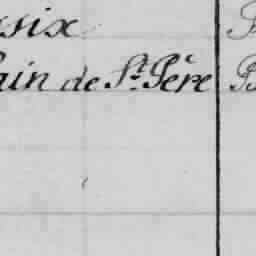 ssix
ain de St. Père